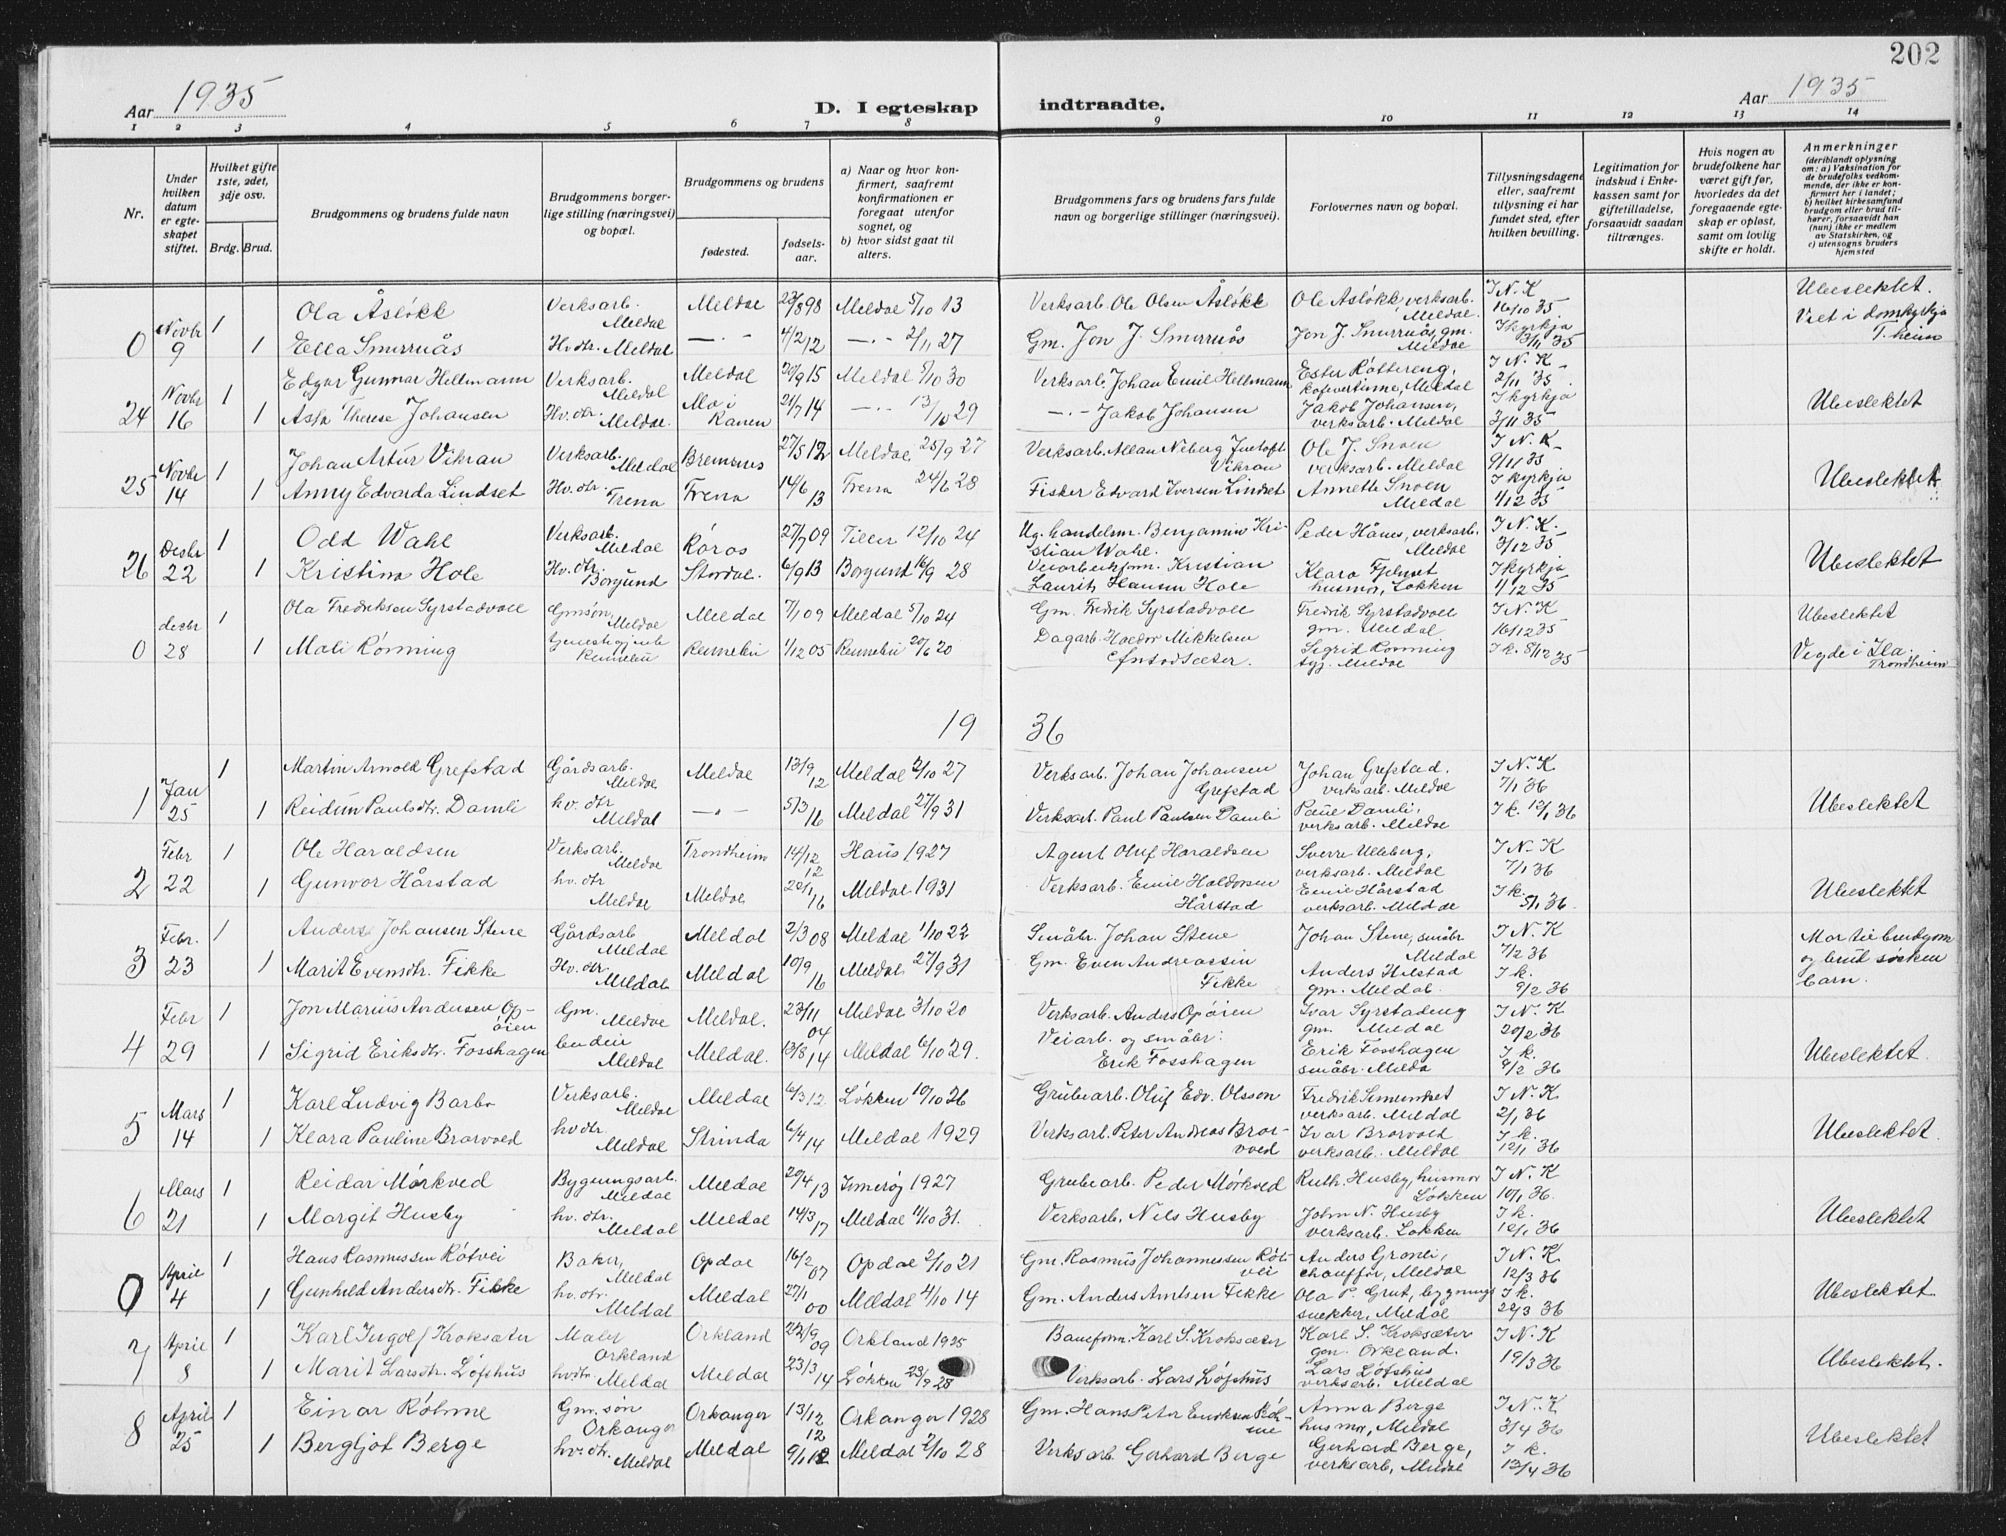 202
Aar 1935
D. I egteskap indtraadte.
Aar 1935
1 2 3 4 5 6 7 8 9 10 11 12 13 14
Nr.
Under hvilken datum er egteskapet stiftet.
Hvilket gifte 1ste, 2det, 3dje osv.
Brdg. Brud.
Brudgommens og brudens fulde navn
Brudgommens borgerlige stilling (næringsvei) og bopæl.
Brudgommens og brudens
fødested. fødselsaar.
a) Naar og hvor konfirmert, saafremt konfirmationen er foregaat utenfor sognet, og
b) hvor sidst gaat til alters.
Brudgommens fars og brudens fars fulde navn og borgerlige stillinger (næringsvei).
Forlovernes navn og bopæl.
Tillysningsdagene eller, saafremt tillysning ei har fundet sted, efter hvilken bevilling.
Legitimation for indskud i Enkekassen samt for giftetilladelse, forsaavidt saadan tiltrænges.
Hvis nogen av brudefolkene har været gift før, hvorledes da det foregaaende egteskap er opløst, samt om lovlig skifte er holdt.
Anmerkninger
(deriblandt oplysning om: a) Vaksination for de brudefolks vedkommende, der ikke er konfirmert her i landet; b) hvilket kirkesamfund brudgom eller brud tilhører, forsaavidt han (hun) ikke er medlem av Statskirken, og c) utensogns bruders hjemsted
0 Novbr 9 1 Ola Åsløkk Verksarb. Meldal Meldal 23/8 98 Meldal 5/10 13 Verksarb. Ole Olsen Åsløkk Ole Åsløkk verksarb. Meldal I N. K 16/10 35 Ubeslektet.
1 Ella Smerruås Hv.dtr. Meldal —〃— 4/2 12 —〃— 2/11 27 Gm. Jon J. Smerruås Jon J. Smerruås, gm. Meldal I kyrkja 3/11 35 Viet i domkyrkja T.heim
24 Novbr 16 1 Edgar Gunnar Hellmann Verksarb. Meldal Meldal 20/9 15 Meldal 5/10 30 Verksarb. Johan Emil Hellmann Ester Røttereng, kafevertinne, Meldal I N. K 2/11 35.
1 Asta Therese Johansen Hv. dtr. Meldal. Mo i Ranen 21/7 14 —〃— 13/10 29 —〃— Jakob Johansen Jakob Johansen, verksarb. Meldal I kyrkja 3/11 35 Ubeslektet
25 Novbr 14 1 Johan Artur Vikran Verksarb. Meldal Bremsnes 27/5 12 Meldal 25/9 27 Verksarb. Allan Neberg Vikran Ole J. Snoen verksarb. Meldal I N. K 9/11 35
1 Anny Edvarda Lindset Hv. dtr. Frena Frena 14/6 13 Frena 24/6 28 Fisker Edvard Iversen Lindset Annette Snoen Meldal I kyrkja 1/12 35 Ubeslektet
26 Desbr 22 1 Odd Wahl Verksarb. Meldal Røros 27/7 09 Tiller 12/10 24 Ug. handelsm. Benjamin Kristian Wahl. Peder Hånes, verksarb. Meldal I N. K. 3/12 35
1 Kristina Hole Hv. dtr. Borgund Stordal. 6/9 13 Borgund 16/9 28 Veiarbeiderform. Kristian Laurits Hansen Hole Klara Fjelnset husmor, Løkken I kyrkja 1/12 35 Ubeslektet
0 desbr 28 1 Ola Fredriksen Syrstadvoll Gmsøn, Meldal Meldal 7/1 09 Meldal 5/10 24 Gm. Fredrik Syrstadvoll Fredrik Syrstadvoll gm. Meldal I N. K 16/12 35 Ubeslektet
1 Mali Rønning Rennebu Rennebu 1/12 05 Rennebu 20/6 20 Dagarb. Haldor Mikkelsen Sigrid Rønning syj. Meldal I k. 8/12 35 Vigde i Ila. Trondheim
19 36
1 Jan 25 1 Martin Arnold Grefstad Gårdsarb. Meldal Meldal 13/9 12 Meldal 2/10 27 Verksarb. Johan Johansen Grefstad Johan Grefstad. verksarb. Meldal I N. K 7/1 36
1 Reidun Paulsdtr. Damli hv. dtr Meldal —〃— 5/3 16 Meldal 27/9 31 Verksarb. Paul Paulsen Damli Paul Damli, verksarb. Meldal I k. 12/1 36 Ubeslektet
2 Febr 22 1 Ole Haraldsen Verksarb. Meldal Trondheim 14/12 12 Haus 1927 Agent Oluf Haraldsen Sverre Ulleberg, verksarb. Meldal I N. K 7/1 36
1 Gunvor Hårstad hv. dtr Meldal Meldal 20/1 16 Meldal 1931 Verksarb. Emil Haldorsen Hårstad Emil Hårstad verksarb. Meldal I k. 5/1 36. Ubeslektet
3 Febr. 23 1 Anders Johansen Stene Gårdsarb Meldal Meldal 2/3 08 Meldal 1/10 22 Småbr. Johan Stene Johan Stene, småbr Meldal I N. K 7/2 36 Mor til brudgom og brud søsken barn.
1 Marit Evensdtr. Fikke Hv. dtr Meldal Meldal 10/9 16 Meldal 27/9 31 Gm. Even Andreassen Fikke Anders Hilstad gm. Meldal. I k. 9/2 36
4 Febr 29 1 Jon Marius Andersen Opøien Gm. Meldal Meldal. 23/11 04 Meldal 3/10 20 Verksarb. Anders Opøien Ivar Syrstadeng gm. Meldal I N. K 20/2 36
1 Sigrid Eriksdtr. Fosshagen budeie Meldal Meldal. 13/8 14 Meldal 6/10 29. Veiarb. og småbr. Erik Fosshagen Erik Fosshagen småbr. Melda I k. 9/2 36 Ubeslektet.
5 Mars 14 1 Karl Ludvig Barbo Verksarb. Meldal Meldal 6/3 12 Løkken 10/10 26 Grubearb. Oluf Edv. Olsson Fredrik Simundset verksarb. Meldal I N. K 2/1 36
1 Klara Pauline Brørvold hv dtr. Meldal Strinda 6/4 14 Meldal 1929 Verksarb. Peter Andreas Brørvold Ivar Brørvold verksarb. Meldal I k. 12/1 36 Ubeslektet.
6 Mars 21 1 Reidar Mørkved Bygningsarb. Meldal Meldal 20/4 13 Inderøy 1927 Grubearb. Peder Mørkved Ruth Husby, husmor Løkken I N. K 10/1 36.
1 Margit Husby hv. dtr. Meldal Meldal 14/3 17 Meldal 11/10 31. Verksarb. Nils Husby John N. Husby verksarb. Løkken I k. 12/1 36 Ubeslektet
0 April 4 1 Hans Rasmussen Røtvei Baker, Meldal Opdal 16/2 07 Opdal 2/10 21 Gm. Rasmus Johannessen Røtvei Anders Grønli, chauffør, Meldal I N. K 12/3 36
1 Gunhild Andersdtr. Fikke hv. dtr. Meldal Meldal 27/1 00 Meldal 4/10 14 Gm. Anders Arntsen Fikke Ola P. Grut, bygningssnekker, Meldal I k. 22/3 36 Ubeslektet.
7 April 8 1 Karl Ingolf Kroksæter Maler Orkland Orkland 22/9 09 Orkland 1925 Baneform. Karl S. Kroksæter Karl S. Kroksæter gm. Orkland. I N. K 19/3 36
1 Marit Larsdtr. Løfshus hvdtr. Meldal Meldal 23/3 14 Løkken 23/9 28 Verksarb. Lars Løfshus Lars Løfshus verksarb. Meldal Ubeslektet.
8 April 25 1 Einar Røhme Gm. søn Orkanger Orkanger 13/12 12 Orkanger 1928 Gm. Hans Peter Røhme Anna Berge husmor, Meldal I N. K 3/4 36
1 Bergljot Berge hv. dtr. Meldal Meldal 9/1 12 Meldal 2/10 28 Verksarb Gerhard Berge Gerhard Berge, verksarb, Meldal I k. 13/4 36 Ubeslektet